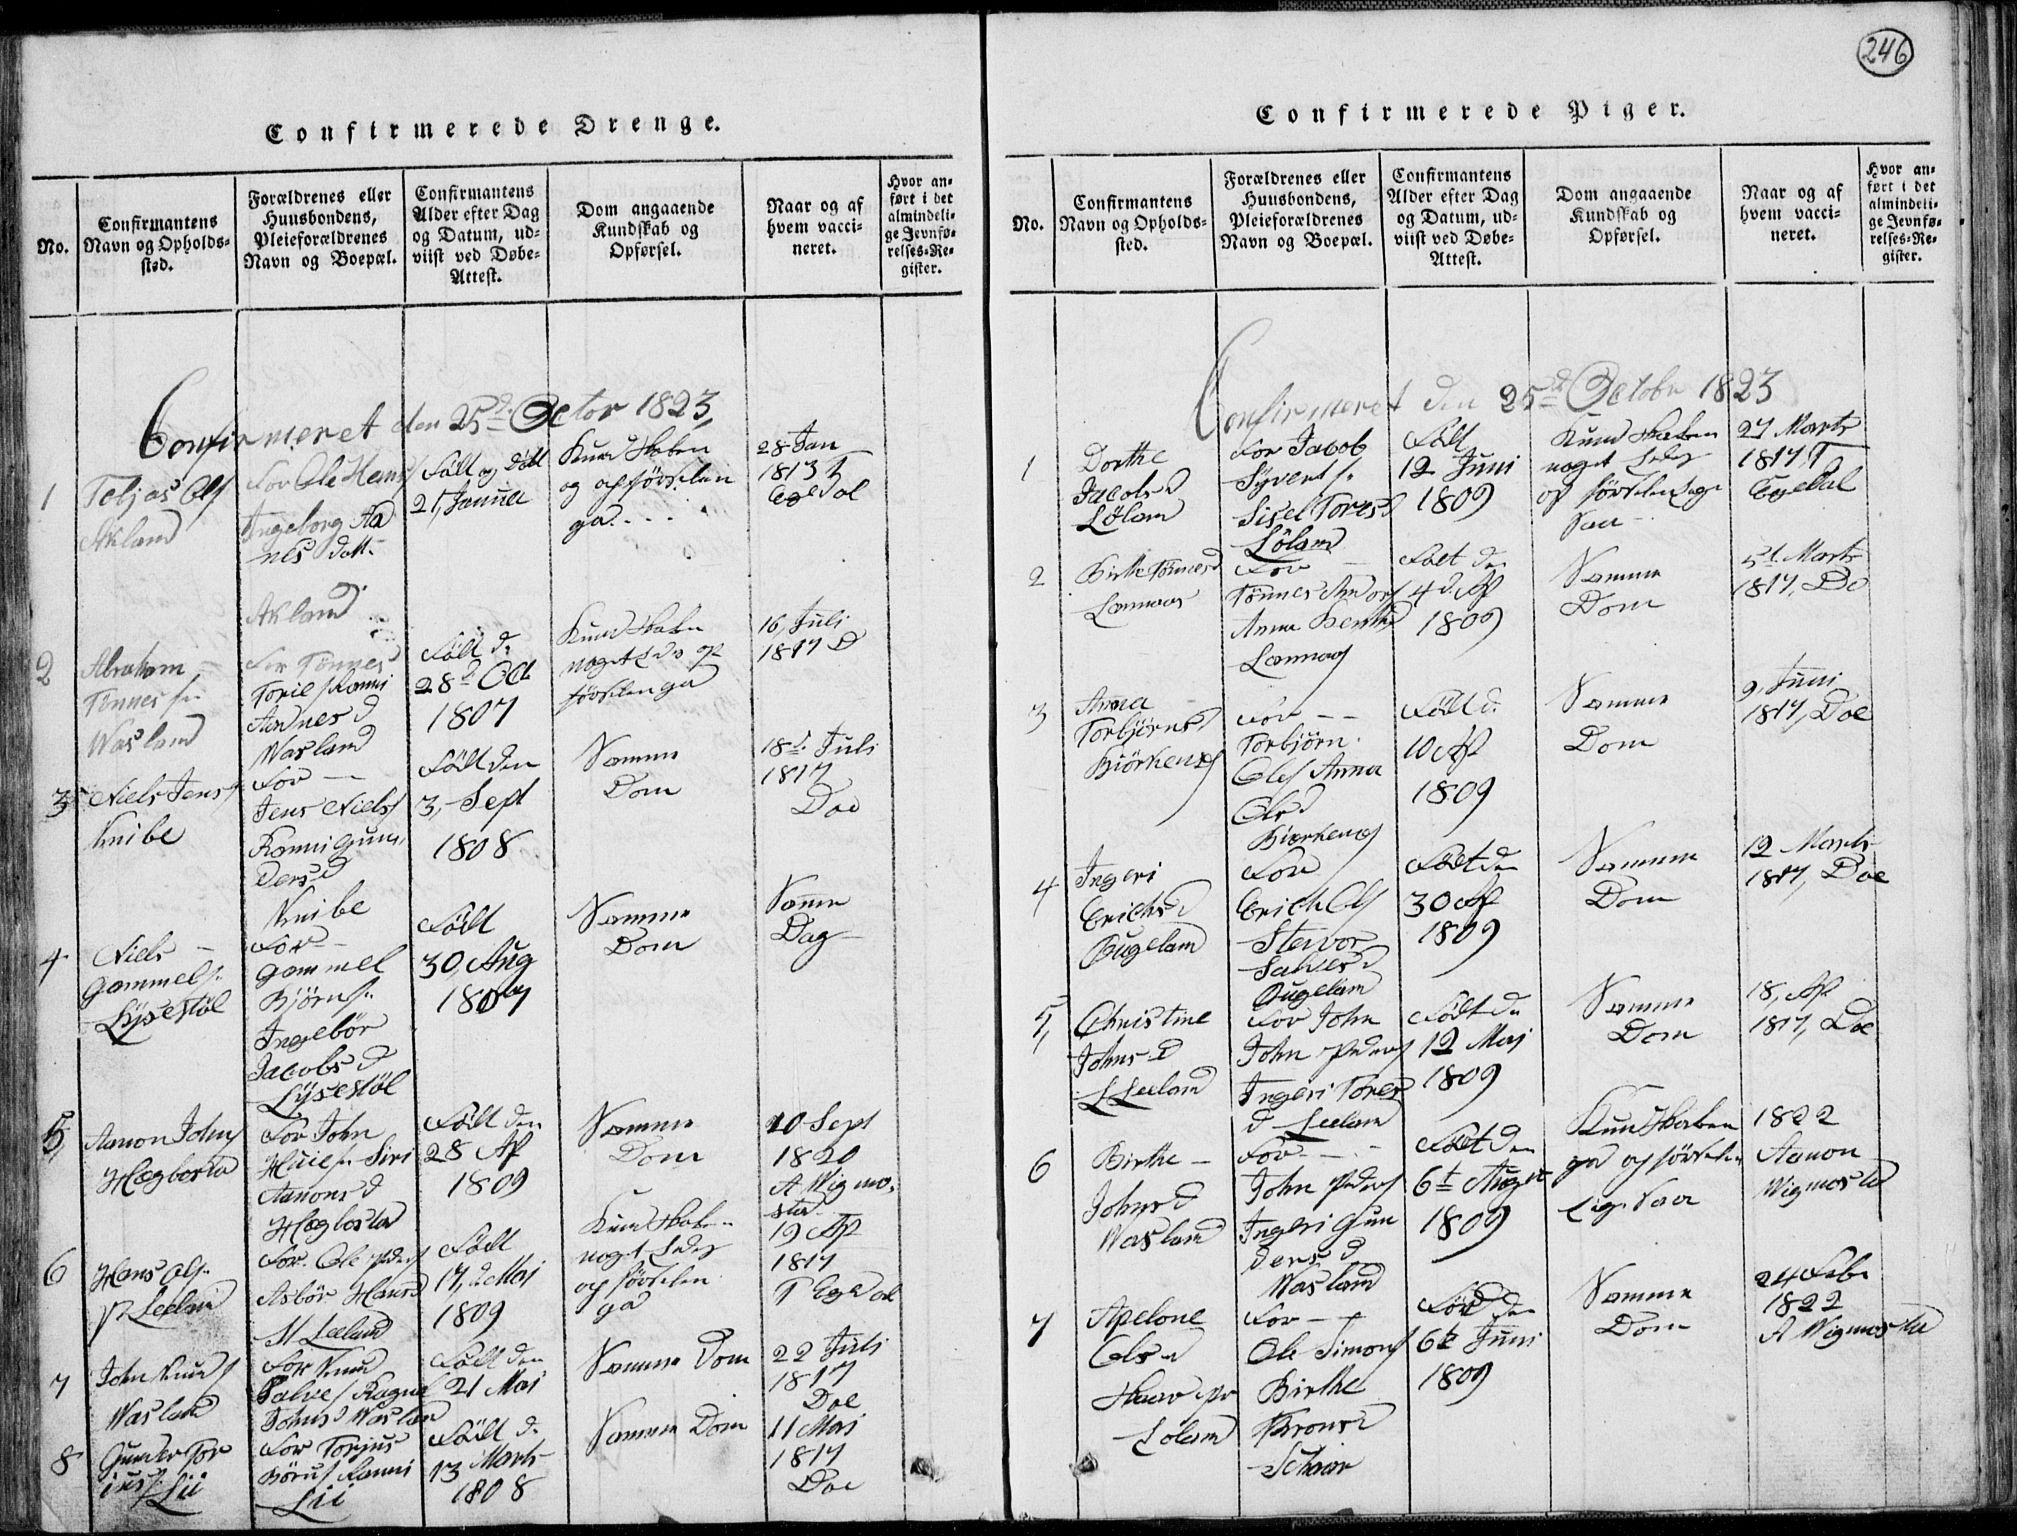 246
Confirmerede Drenge.
No.
Confirmantens
Navn og Opholds-
sted.
Forældrenes eller
Huusbondens,
Pleieforældrenes
Navn og Boepæl.
Confirmantens
Alder efter Dag
og Datum, ud-
viist ved Døbe-
Attest.
Dom angaaende
Kundskab og
Opførsel.
Naar og af
hvem vacci-
neret.
Hvor an-
ført i det
almindeli-
ge Jevnfø-
relses-Re-
gister.
Confirmeret den 25d. Octor 1823,
1
Teljas Ols
Akland
For Ole Hans
Ingeborg Aa
nes datt.
Akland
Født og døbt
21, Janua
Kundskaben
og opførselen
gd...
28 Jan
1813 T
Egedal
2
Abraham
Tønnes s.
Wasland
For Tønnes
Toril s Ranni
Aadnes d
Wasland
Født d.
28d Oct
1807
Kundskabe
noget
førselen gd
16, Juli
1817 D
3
Niels Jens
Knibe
For
Jens Niels
Ranni Gun
ders d
Knibe
Født den
3, Sept
1808
Samme
Dom
18d. Juli
1817
Doe
4
Niels
Gammels.
Lysestøl
For
Gammel
Bjørns.
Ingebør
Jacobs d
Lysestøl
Født
30, Aug
1807
Samme
Dom
Samme
Dag
5,
Aanon Johns
Hægbosta
For John
Siri
Aanons d
Hægbosta
Født den
28 Ap
1809
Samme
Dom
10 Sept
1820
A Wigmo-
sta
6
Hans Ols.
Leeland
For Ole Peders
Asbør Hans d
St Leeland
Født
17, d Maj
1809
Kundskabe
noget
og førselen
gd
19 Ap
1817
T Egedal
7
John Knuds
Wasland
For Knud
Salves Ragne
Johns d Wasland
Født den
21 Maj
Samme Dom
22 Juli
1817
Doe
8
Gunder Tor
jus s. Lii
For Torjus
Børus Ranni
Lii
Født d.
13 Marts
1808
Samme Dom
11 Maj
1817
Doe
Confirmerede Piger.
No.
Confirmantens
Navn og Opholds-
sted.
Forældrenes eller
Huusbondens,
Pleieforældrenes
Navn og Boepæl.
Confirmantens
Alder efter Dag
og Datum, ud-
viist ved Døbe-
Attest.
Dom angaaende
Kundskab og
Opførsel.
Naar og af
hvem vacci-
neret.
Hvor an-
ført i det
almindeli-
ge Jevnfø-
relses-Re-
gister.
Confirmeret den 25de Octobr 1823
1
Dorthe
Jacobs d
Løland
For Jacob
Syvert s.
Sisel Tores d
Løland
Født
12 Juni
1809
Kundskaben
noget
og førselen lige
saa
27 Marts
1817, T
Egedal
2
Birthe Tønnes d
For
Tønnes Andors
Anna
Født den
4 d. Ap
1809
Samme
Dom
5t Marts
1817, Do
3
Anna
Torbjørns d
For
Torbjørn
Ols Anna
Ols d
Født d.
10 Ap
1809
Samme
Dom
9, Juni
1817, Doe
4
Ingeri
Erichs d
Bugeland
For
Erich Ols
Steivor
Salves d
Bugeland
Født den
30 Ap
1809
Samme
Dom
12 Marts
1817, Doe
5,
Christine
Johns d
L Leeland
For John
John Peders
Ingeri Tores
d Leeland
Født d.
12 Maj
1809
Samme
Dom
18, Ap
1817, Doe
6
Birthe
Johns d
Wasland
For
John Peders
Ingeri Gun
ders d
Wasland
Født den
6t August
1809
Kundskaben
gd og førselen
lige saa
1822
Aanon
Wigmosta
7
Apelone
Ols d
Løland
For
Ole Simons
Birthe
Schaar
Født den
6te Juni
1809
Samme
Dom
24 Febr
1822
A Wigmosta